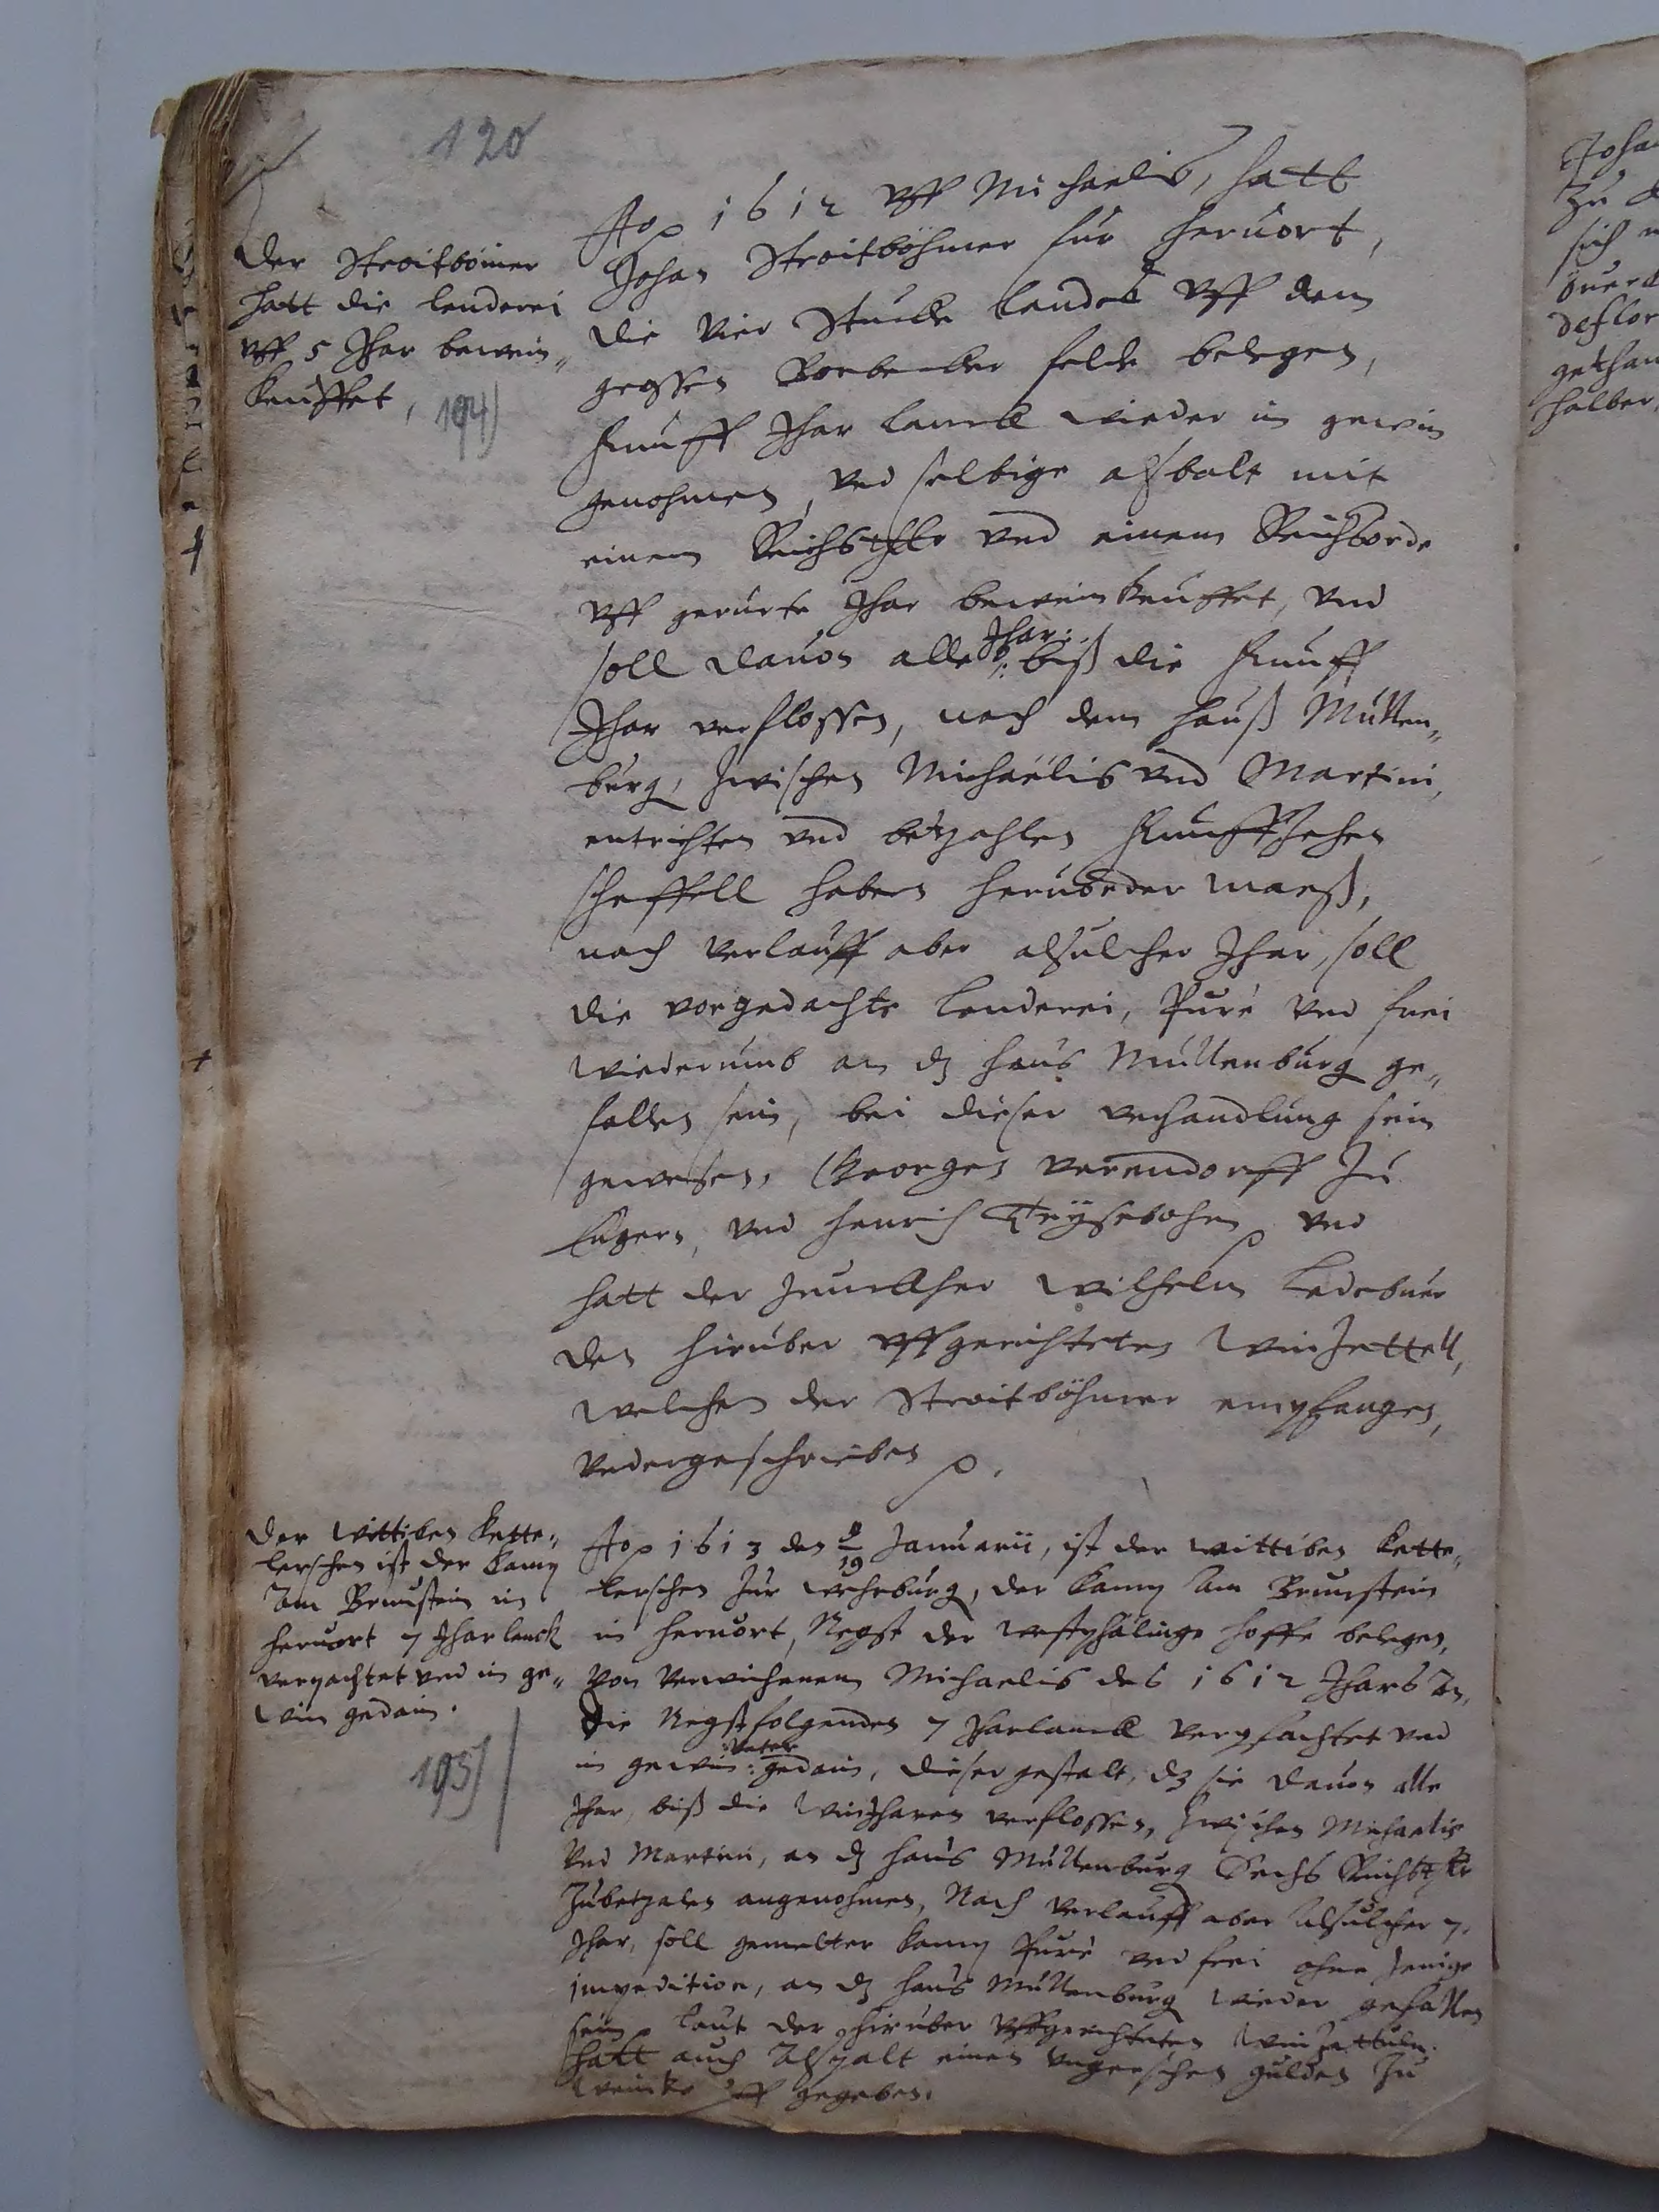 120
Der Stroitbömer
hatt die lenderei
vff 5 Jhar bewein„
keuffet,
194)
Aop 1612 vff Michaelis, hatt
Johan Stroitböhmer für Heruort,
die vier Stucke Landes vff dem
grossen felde belegen,
Funff Jhar lanck wieder in gewin
genohmen, vnd selbige alsbalt mit
einem Reichsthlr vnd einem Reichßorde
vff gerurte Jhar beweinkeuffet, vnd
soll dauon alle Jhar: /: biß die Funff
Jhar verflossen, nach dem hauß Müllen„
burg, zwischen Michaëlis vnd Martini,
entrichten vnd betzahlen Funffzehen
scheffell habern heruörder maeß,
nach verlauff aber alsulcher Jhar, soll
die vorgedachte Lenderei, Puré vnd frei
wiederumb an dz haus Mullenburg ge„
fallen sein, bei dieser verhandlung sein
gewesen, Georgen verendorff zu
Engern, vnd Henrich Teÿsebohm vnd
hatt der Junckher Wilhelm Ledebuer
den hirüber vffgerichteten Winzettell,
welchen der Stroitböhmer empfangen,
vndergeschrieben p.
Der Wittiben Kette„
lerschen ist der Kamp
Am Brunstein in
heruort 7 Jhar lanck
verpachtet vnd in ge„
win gedain.
195)
Aop 1613 den 9/19 Januarii, ist der wittiben Kette„
lerschen zur Wehrburg, der Kamp am Brunstein
in heruort, Negst der westphälinge hoffe belegen,
von verwichenem Michaelis des 1612 Jhars an,
die Negstfolgenden 7 Jharlanck verpfachtet vnd
in gewin: gedain, dieser gestalt, dz sie dauon alle
Jhar, biß die Winjharen verflossen, zwischen Michaelis
vnd Martini, an dz haus Müllenburg Sechs Reichsthlr
zubetzalen angenohmen, Nach verlauff aber alsulcher 7.
Jhar, soll gemelter Kamp Puré vnd frei ohne Jenige
impedition, an dz haus Müllenburg wieder gefallen
sein Laut der hirüber vffgerichteten Winzettuln.
hatt auch Alspalt einen vngerschen gulden zu
weinkeuff gegeben.